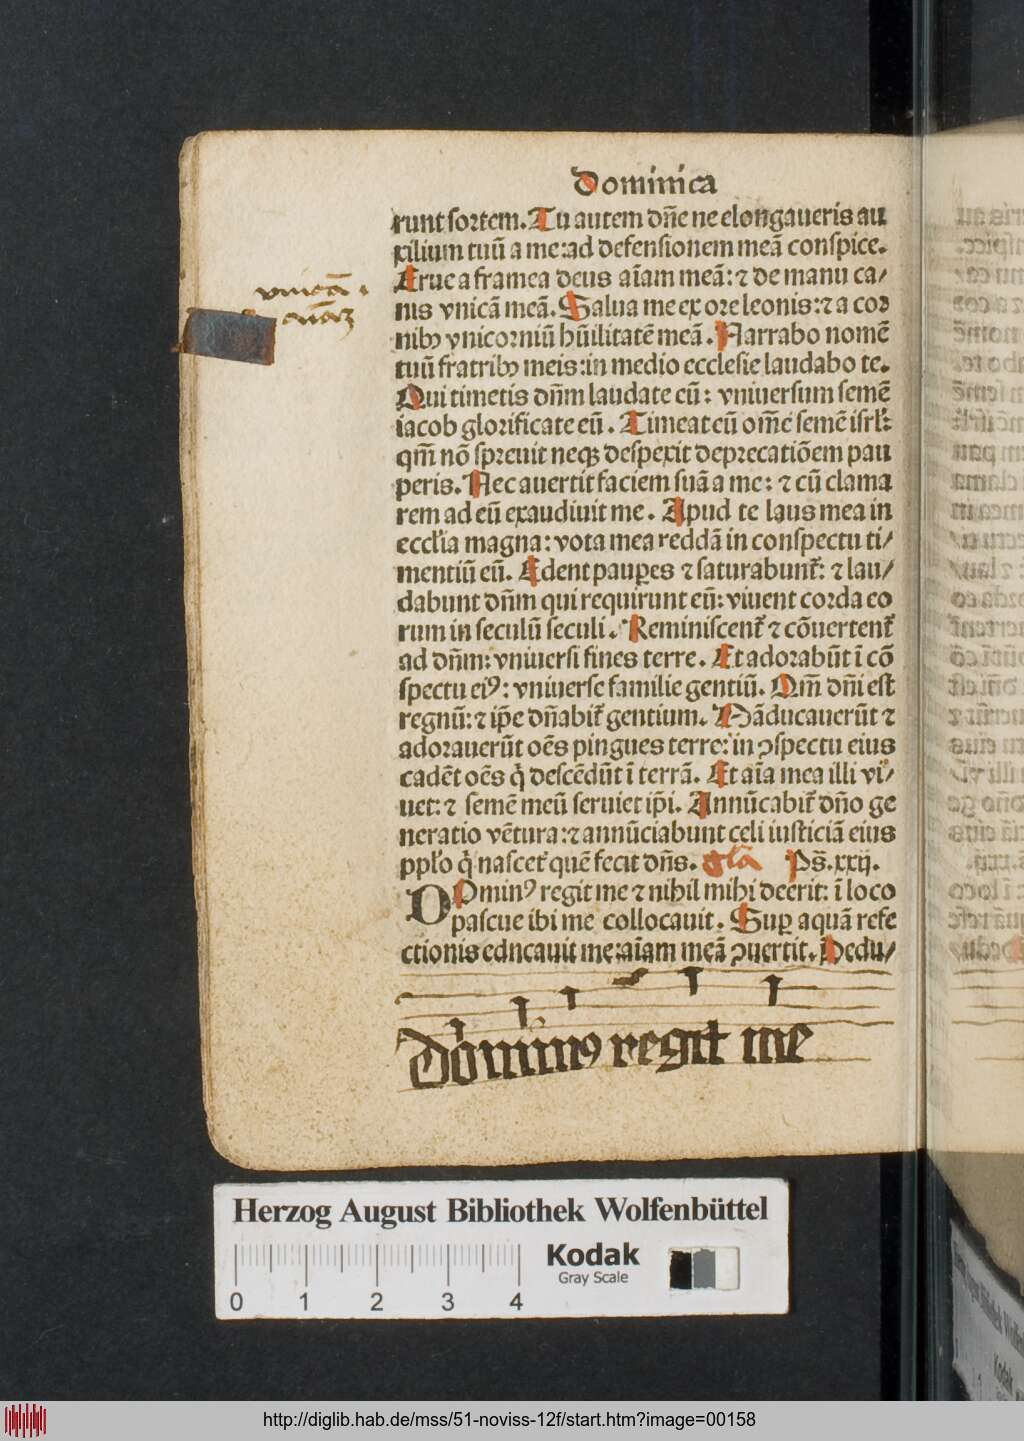 Dominica
runt sortem. Tu autem dn̄e ne elongaueris au
xilium tuū a me:ad defensionem meā conspice.
Erue a framea deus aīam meā: ⁊ de manu ca/
nis vnicā meā. Salua me ex ore leonis:⁊ a cor
nibꝰ vnicorniū hūilitatē meā. Narrabo nomē
tuū fratribꝰ meis:in medio ecclesie laudabo te.
Qui timetis dn̄m laudate eū: vniuersum semē
iacob glorificate eū. Timeat eū om̄e semē isrl̓:
qm̄ nō spreuit neqꝫ despexit deprecatiōem pau
peris. Nec auertit faciem suā a me: ⁊ cū clama
rem ad eū exaudiuit me. Apud te laus mea in
eccl̓ia magna: vota mea reddā in conspectu ti/
mentiū eū. Edent pauꝑes ⁊ saturabunt̓: ⁊ lau/
dabunt dn̄m qui requirunt eū: viuent corda eo
rum in seculū seculi. Reminiscent̓ ⁊ cōuertent̓
ad dn̄m: vniuersi fines terre. Et adorabūt ī cō
spectu eiꝰ: vniuerse familie gentiū. Qm̄ dn̄i est
regnū: ⁊ ip̄e dn̄abit̓ gentium. Māducauerūt ⁊
adorauerūt oēs pingues terre: in ꝯspectu eius
cadēt oēs q̇ descēdūt ī terrā. Et aīa mea illi vi/
uet: ⁊ semē meū seruiet ip̄i. Annūcabit̓ dn̄o ge
neratio vētura:⁊ annūciabunt celi iusticiā eius
ppl̓o q̇ nascet̓ quē fecit dn̄s. gl̄a Ps̄.xxij.
DOminꝰ regit me ⁊ nihil mihi deerit: ī loco
pascue ibi me collocauit. Suꝑ aquā refe
ctionis edncauit me:aīam meā ꝯuertit. Dedu/
vnicā
Dominꝰ regit me
Herzog August Bibliothek Wolfenbüttel
Kodak
Gray Scale
0 1 2 3 4
http://diglib.hab.de/mss/51-noviss-12f/start.htm?image=00158